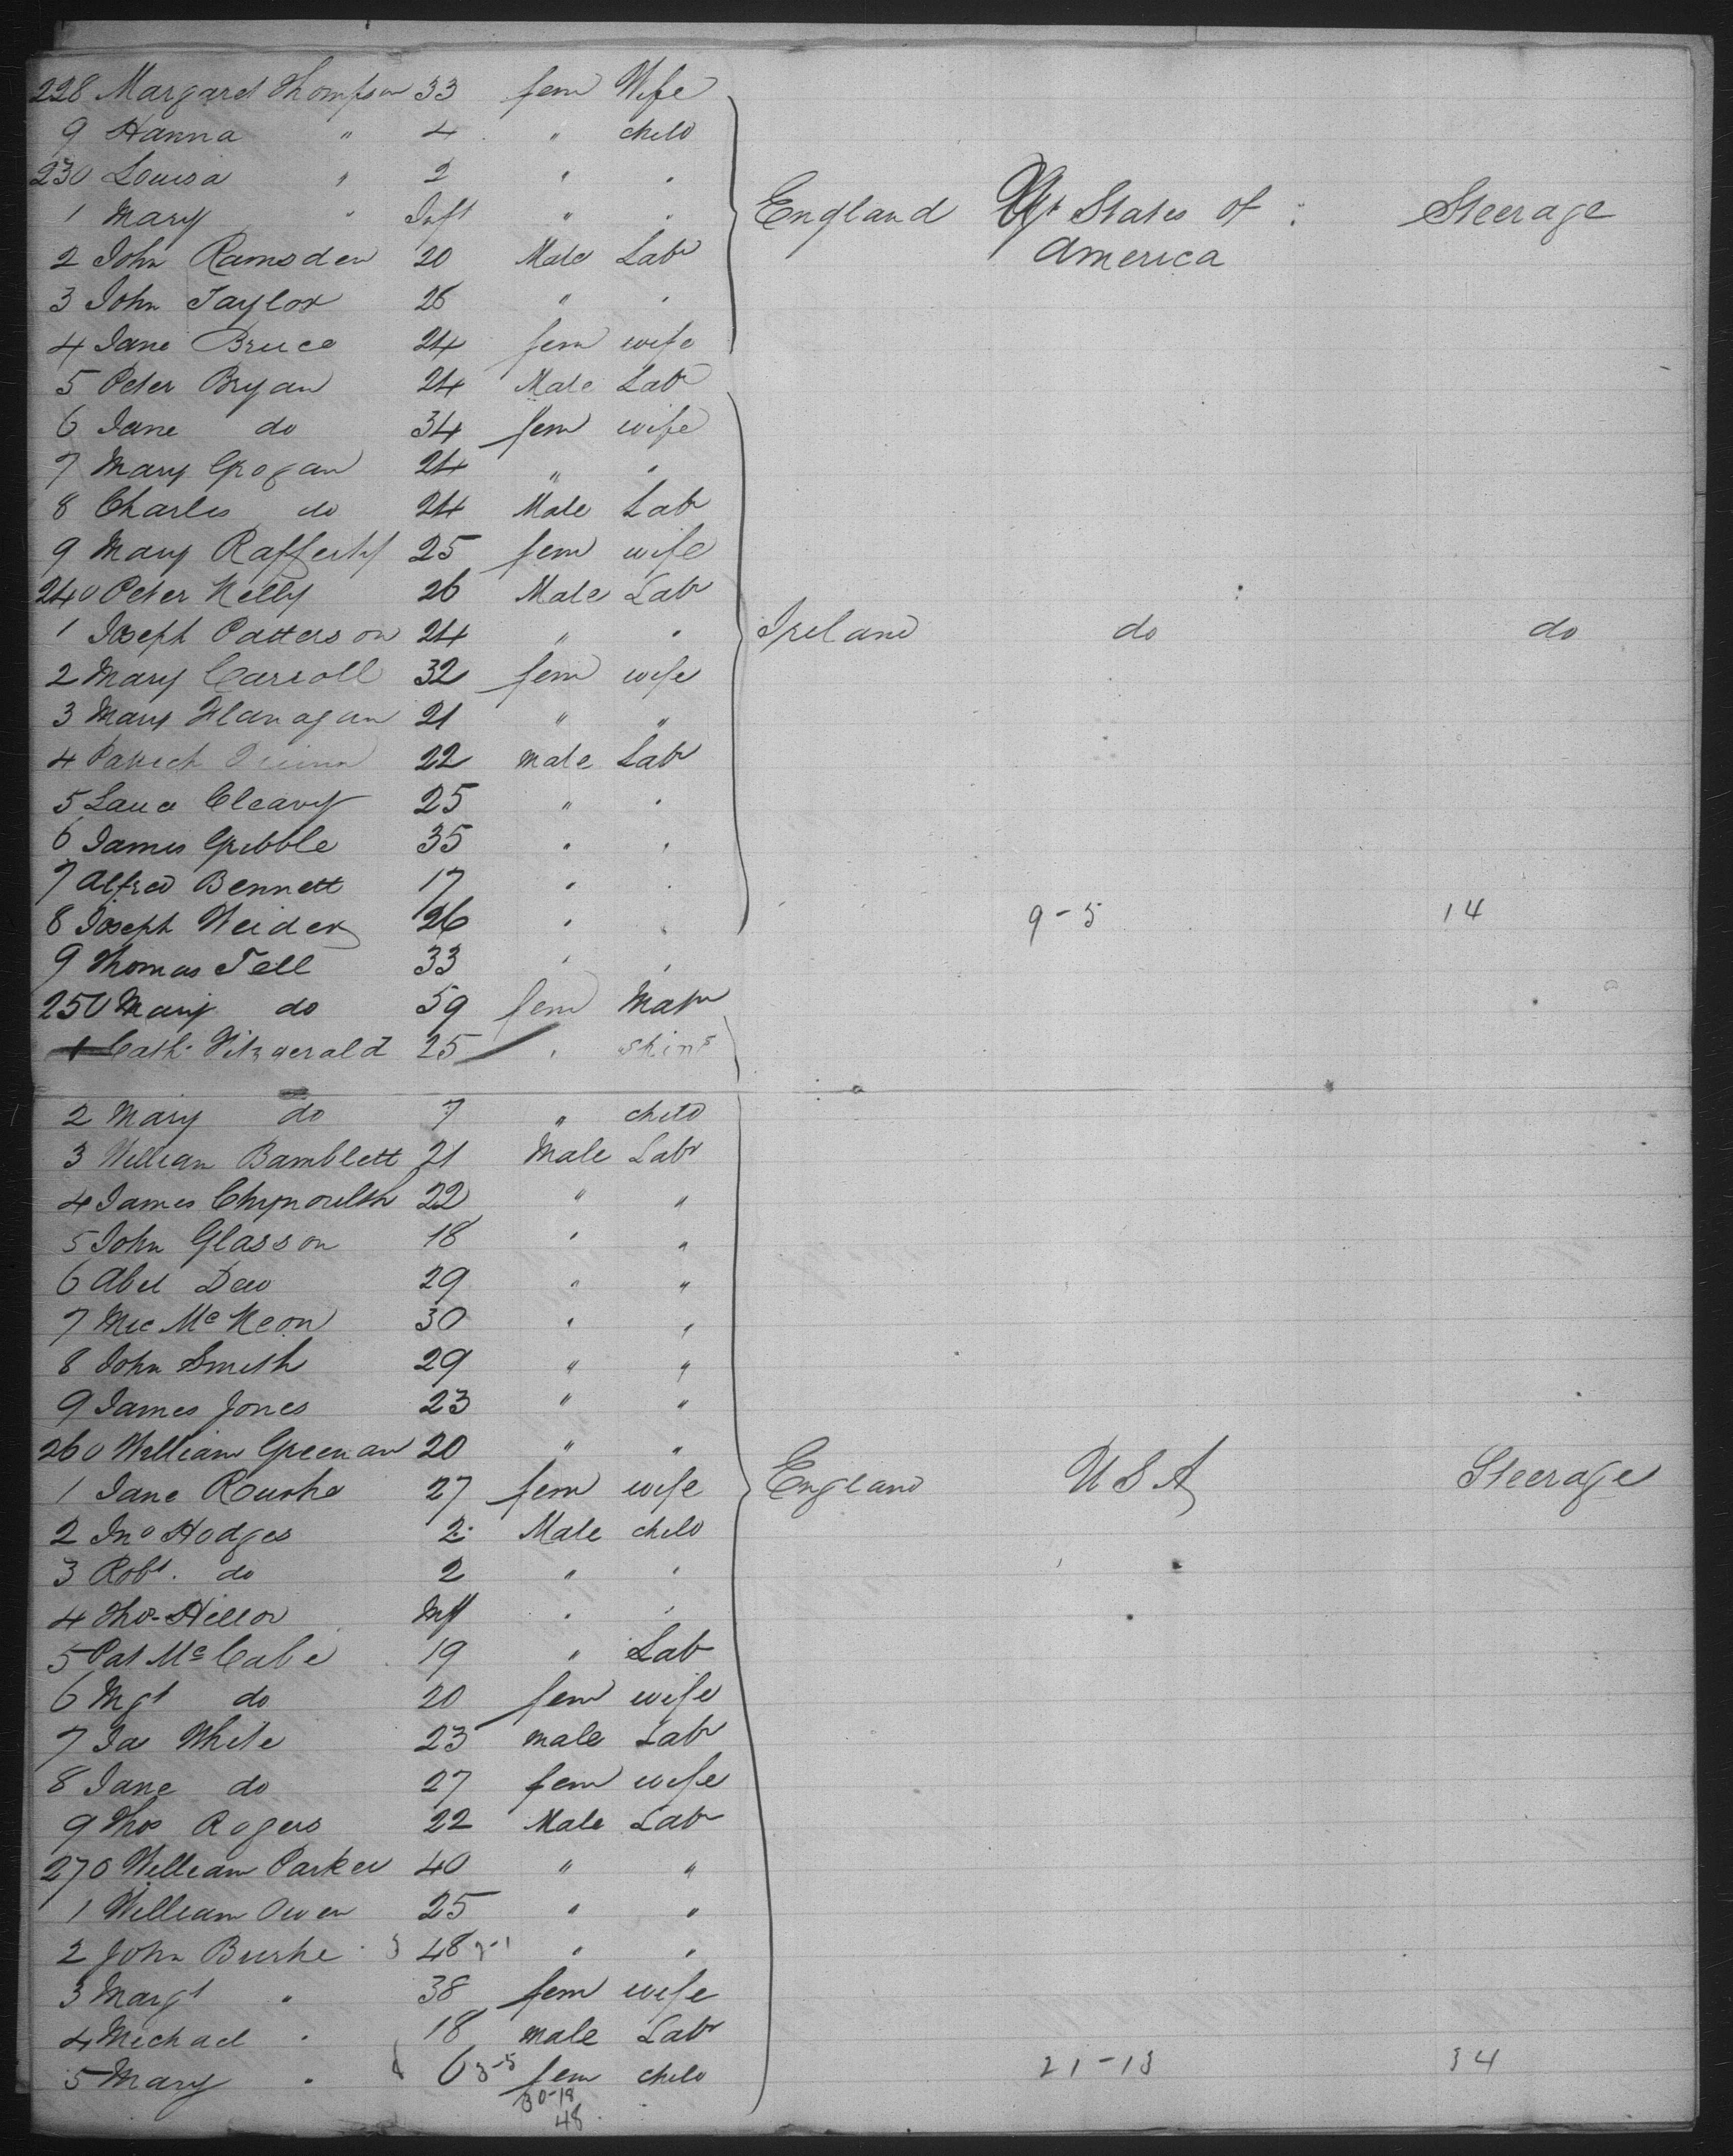 228 Margaret Thompson 33 fem Wife
9 Hanna " 4 " child
230 Louisa " 2 " "
1 Mary " Inft " " England Ut States of Steerage
America
2 John Ramsden 20 Male Labr
3 John Taylor 26 " "
4 Jane Bruce 24 fem wife
5 Peter Bryan 24 Male Labr
6 Jane do 34 fem wife
7 Mary Grogan 24 " "
8 Charles do 24 Male Labr
9 Mary Rafferty 25 fem wife
240 Peter Kelly 26 Male Labr
1 Joseph Patterson 24 " " Ireland do do
2 Mary Carroll 32 fem wife
3 Mary Flanagan 21 " "
4 Patrick Quinn 22 male Labr
5 Cleary 25 " "
6 James Gribble 35 " "
7 Alfred Bennett 17 " "
8 Joseph Weider 26 " " 9-5 14
9 Thomas Tell 33 " "
250 Mary do 59 fem Matr
1 Cath. Fitzgerald 25 "
2 Mary do 7 " child
3 William Bamblett 21 Male Labr
4 James 22 " "
5 John Glasson 18 " "
6 Abel Dew 29 " "
7 Mic McKeon 30 " "
8 John Smith 29 " "
9 James Jones 23 " "
260 William Greenan 20 " "
1 Jane Rourke 27 fem wife England U S A Steerage
2 Jno Hodges 2 Male child
3 Robt. do 2 " "
4 Thos Inft " "
5 Pat McCabe 19 " Lab
6 Mgt do 20 fem wife
7 Jas White 23 male Labr
8 Jane do 27 fem wife
9 Thos Rogers 22 Male Labr
270 William Parker 40 " "
1 William Owen 25 " "
2 John Burke 48 " "
3 Margt " 38 fem wife
4 Michael " 18 male Labr
5 Mary " 6 3-5 fem child 21-13 34
30-18
48